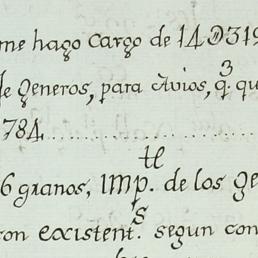 me hago cargo de 140319
de generos, para Avios, q.³ qu
784
6 granos, Imp.te de los ge
con existent.s segun con